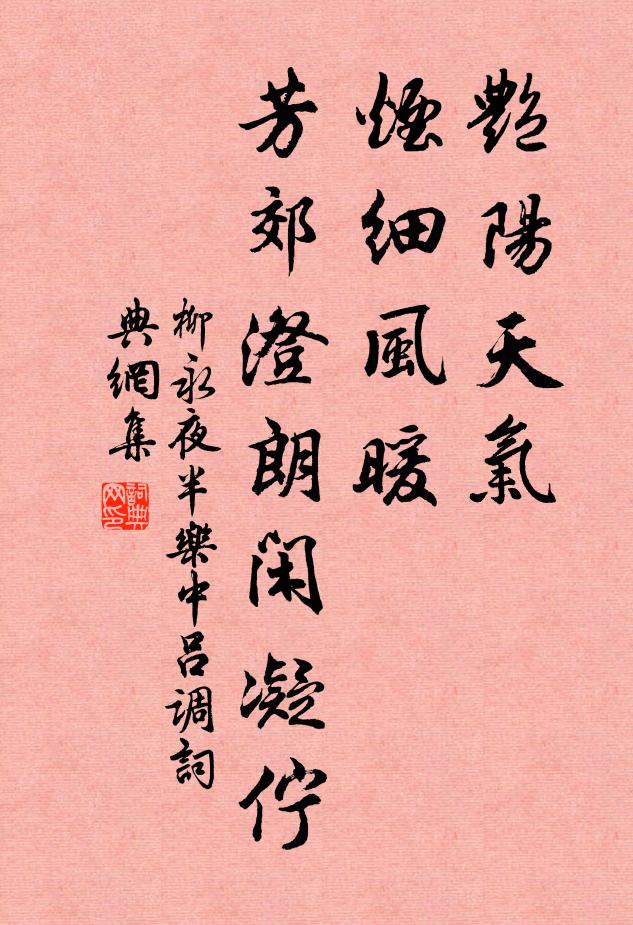 艷陽天氣
煙細風暖
芳郊澄朗閑凝佇
柳永夜半樂中呂調詞
典網集
詞典網印